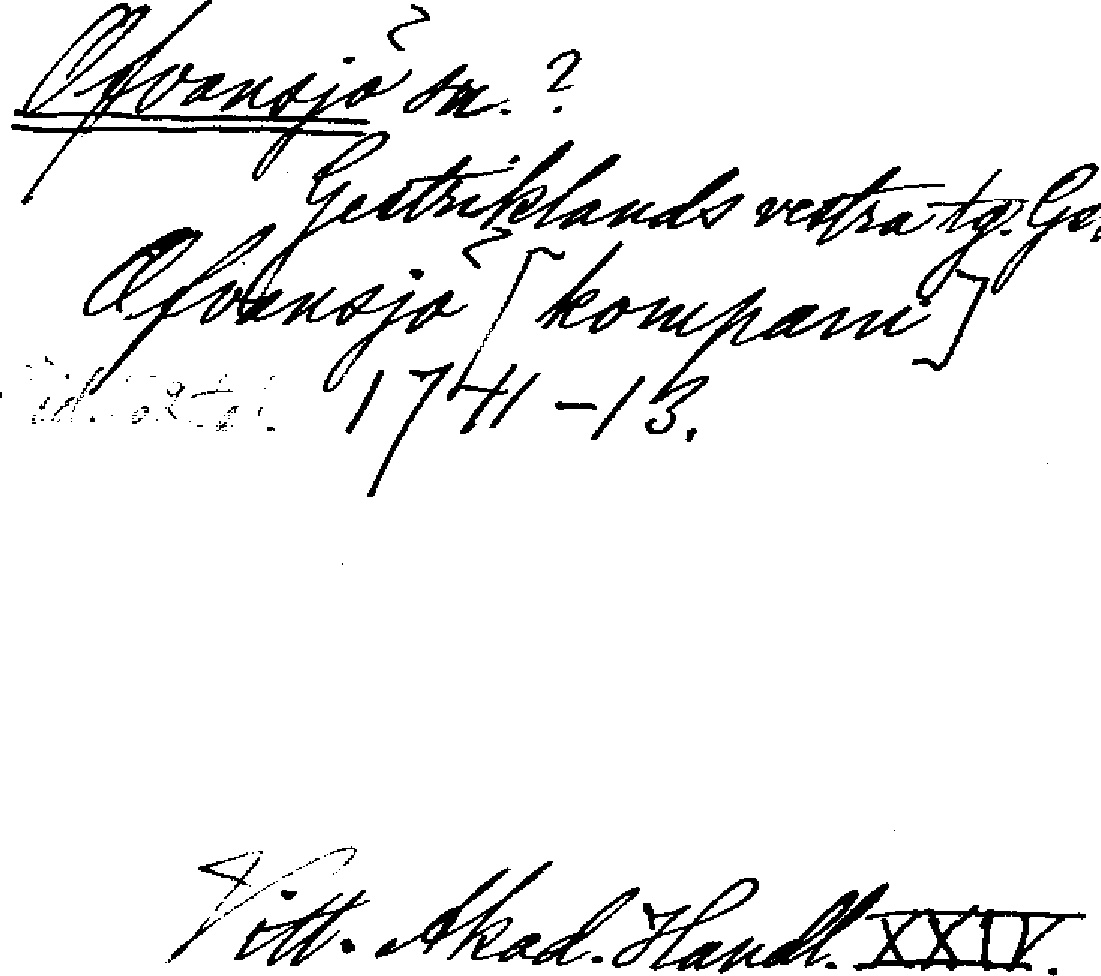 Ofvansjö sn. ?
Gestriklands vestra tg. Ge
Ofvansjö [kompani]
1741-13.
Vitt. Akad. Handl. XXIV.